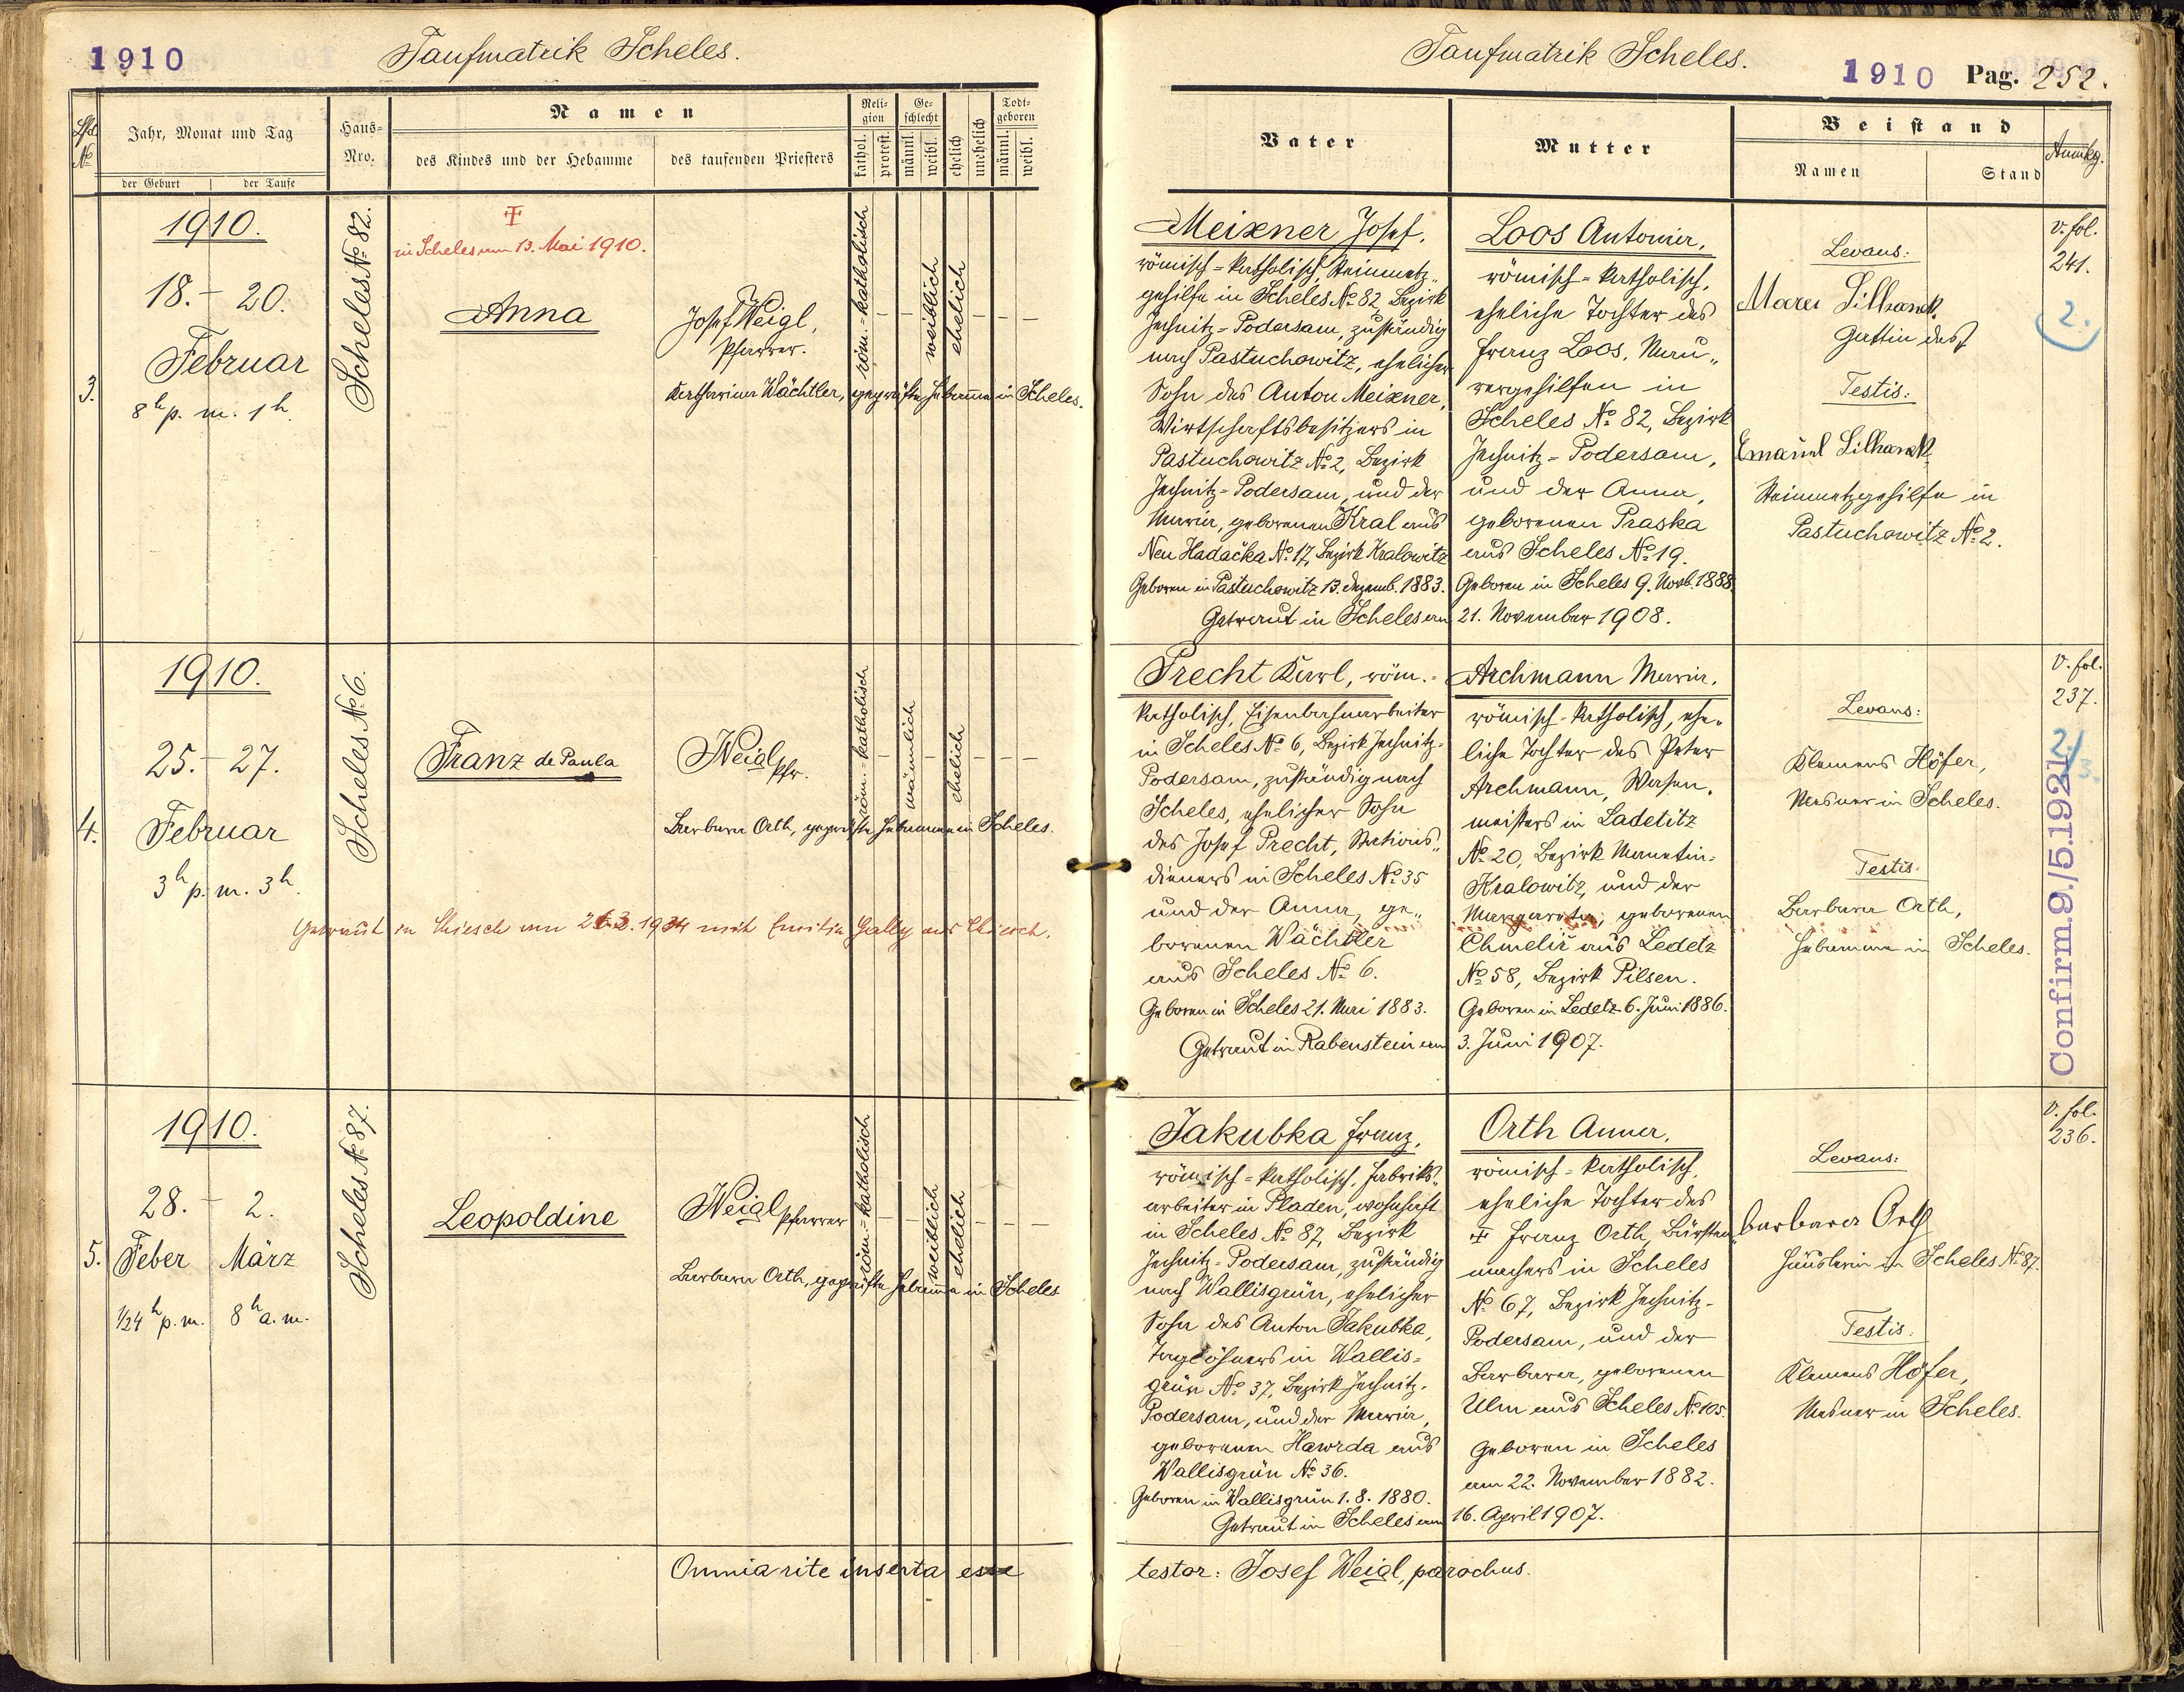 1910
Taufmatrik Scheles.
Lfd. №
Jahr, Monat und Tag
der Geburt
der Taufe
Haus-
Nro.
Namen
des Kindes und der Hebamme
des taufenden Priesters
Reli-
gion
kathol.
protest.
Ge-
schlecht
männl.
weibl.
ehelich
unehelich
Todt-
geboren
männl.
weibl.
3.
1910.
18. - 20.
Februar
8h p. m. 1h.
Scheles № 82.
in Scheles am 13. Mai 1910.
Anna
Josef Weigl,
Pfarrer.
Katharina Wächtler, geprüfte Hebamme in Scheles.
röm.-katholisch
weiblich
ehelich
4.
1910.
25. - 27.
Februar
3h p. m. 3h.
Scheles № 6.
Franz de Paula
Weigl Pfr.
Barbara Orth, geprüfte Hebamme in Scheles.
röm.-katholisch
männlich
ehelich
Getraut in Chiesch am 1934 mit Emilie Gally aus Chiesch.
5.
1910.
28. - 2.
Feber März
1/24h p. m. 8h a. m.
Scheles № 87.
Leopoldine
Weigl Pfarrer
Barbara Orth, geprüfte Hebamme in Scheles
röm.-katholisch
weiblich
ehelich
Omnia rite inserta esse
Taufmatrik Scheles.
1910 Pag. 252.
Vater
Mutter
Beistand
Namen
Stand
Anmkg.
Meixner Josef,
römisch-katholisch, Steinmetz-
gehilfe in Scheles № 82, Bezirk
Jechnitz-Podersam, zuständig
nach Pastuchowitz, ehelicher
Sohn des Anton Meixner,
Wirtschaftsbesitzers in
Pastuchowitz № 2, Bezirk
Jechnitz-Podersam, und der
Maria, geborenen Kral aus
Neu Hadačka № 17, Bezirk Kralowitz
Geboren in Pastuchowitz 13. Dezemb. 1883.
Loos Antonia,
römisch-katholisch,
eheliche Tochter des
Franz Loos, Mau-
rergehilfen in
Scheles № 82, Bezirk
Jechnitz-Podersam,
und der Anna,
geborenen Praska
aus Scheles № 19.
Geboren in Scheles 9. Novb. 1888.
Getraut in Scheles am 21. November 1908.
Levans:
Gattin des
Testis:
Steinmetzgehilfe in
Pastuchowitz № 2.
v. fol.
241.
2.
Precht Karl, röm.-
katholisch, Eisenbahnarbeiter
in Scheles № 6, Bezirk Jechnitz-
Podersam, zuständig nach
Scheles, ehelicher Sohn
des Josef Precht, Stations-
dieners in Scheles № 35
und der Anna, ge-
borenen Wächtler
aus Scheles № 6.
Geboren in Scheles 21. Mai 1883.
Archmann Maria,
römisch-katholisch, ehe-
liche Tochter des Peter
Archmann, Wasen-
meisters in Ladetitz
№ 20, Bezirk Manetin-
Kralowitz, und der
Margareta, geborenen
Chmeliř aus Ledetz
№ 58, Bezirk Pilsen.
Geboren in Ledetz 6. Juni 1886.
Getraut in Rabenstein am 3. Juni 1907.
Levans:
Klemens Höfer,
Mesner in Scheles.
Testis:
Barbara Orth,
Hebamme in Scheles.
v. fol.
237.
Confirm. 9./5.1921.
Jakubka Franz,
römisch-katholisch, Fabriks-
arbeiter in Pladen, wohnhaft
in Scheles № 87, Bezirk
Jechnitz-Podersam, zuständig
nach Wallisgrün, ehelicher
Sohn des Anton Jakubka,
Taglöhners in Wallis-
grün № 37, Bezirk Jechnitz-
Podersam, und der Maria,
geborenen Hawrda aus
Wallisgrün № 36.
Geboren in Wallisgrün 1. 8. 1880.
Orth Anna,
römisch-katholisch,
eheliche Tochter des
† Franz Orth, Bürsten-
machers in Scheles
№ 67, Bezirk Jechnitz-
Podersam, und der
Barbara, geborenen
Ulm aus Scheles № 105.
Geboren in Scheles
am 22. November 1882.
Getraut in Scheles am 16. April 1907.
Levans:
Barbara Orth
Häuslerin in Scheles № 87.
Testis:
Klemens Höfer,
Mesner in Scheles.
v. fol.
236.
testor: Josef Weigl, parochus.